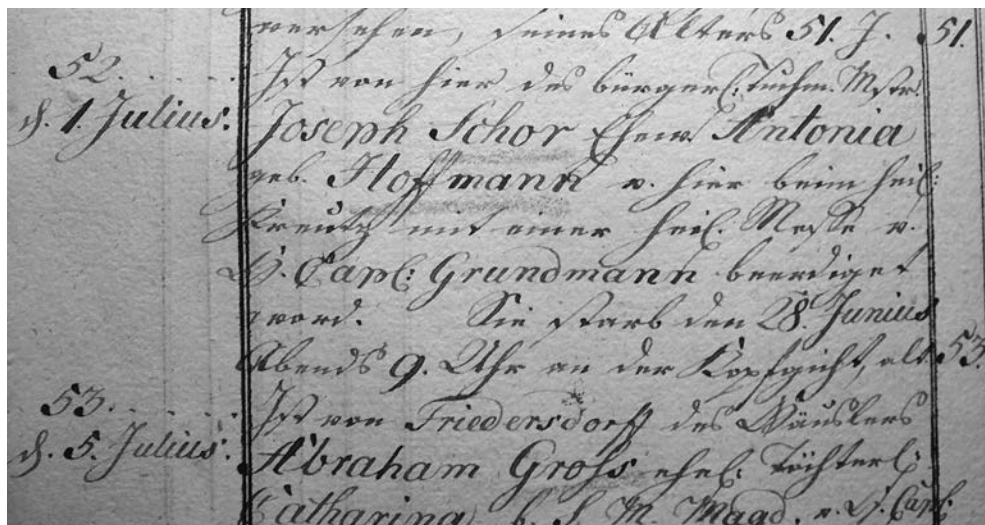 versehen, seines Alters 51. J. 51.
52. . . . . Ist von hier des bürgerl: Tuchm. Mstr.
d. 1. Julius. Joseph Schor Ehew. Antonia
geb. Hoffmann v. hier beim heil:
Kreutz mit einer heil. Messe v.
H. Capl: Grundmann beerdiget
word. Sie starb den 28. Junius
Abends 9. Uhr an der Kopfgicht, alt 53.
53. . . . . Ist von Friedersdorff des Häuslers
d. 5. Julius. Abraham Groſs ehel: Töchterl:
Catharina b. S. M. Magd. v. H. Capl: